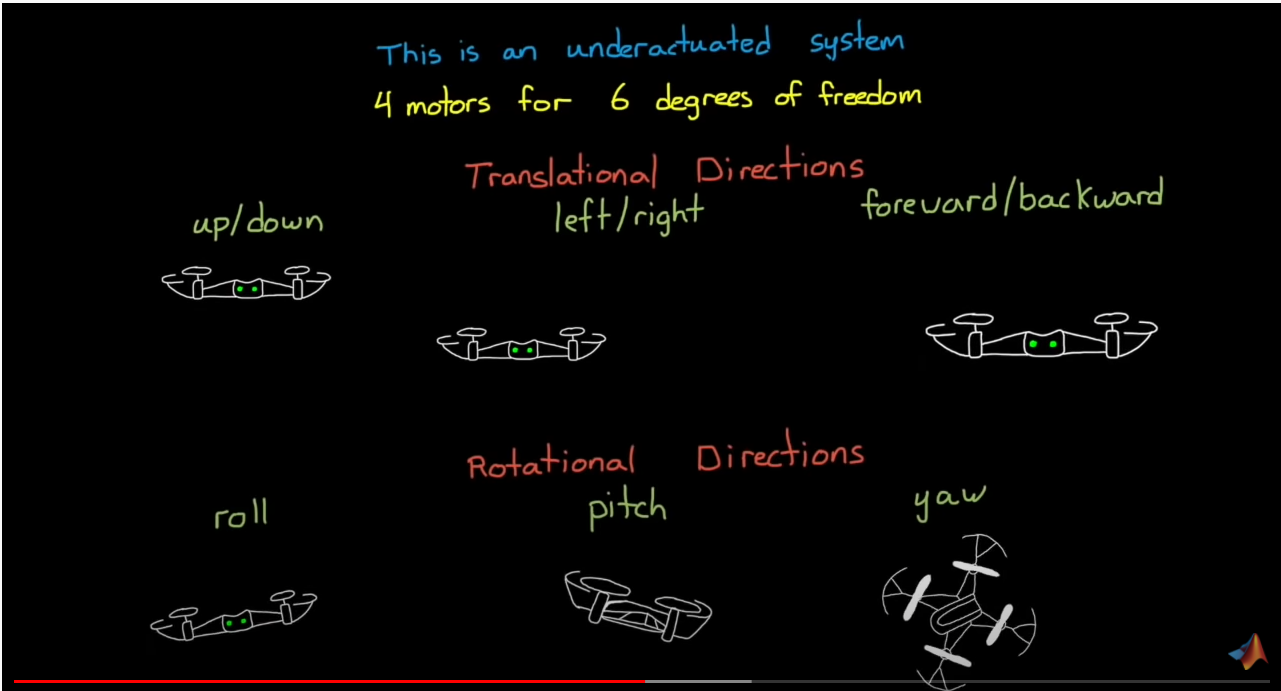 This is an underactuated system
4 motors for 6 degrees of freedom
Translational Directions
up/down left/right foreward/backward
Rotational Directions
roll pitch yaw